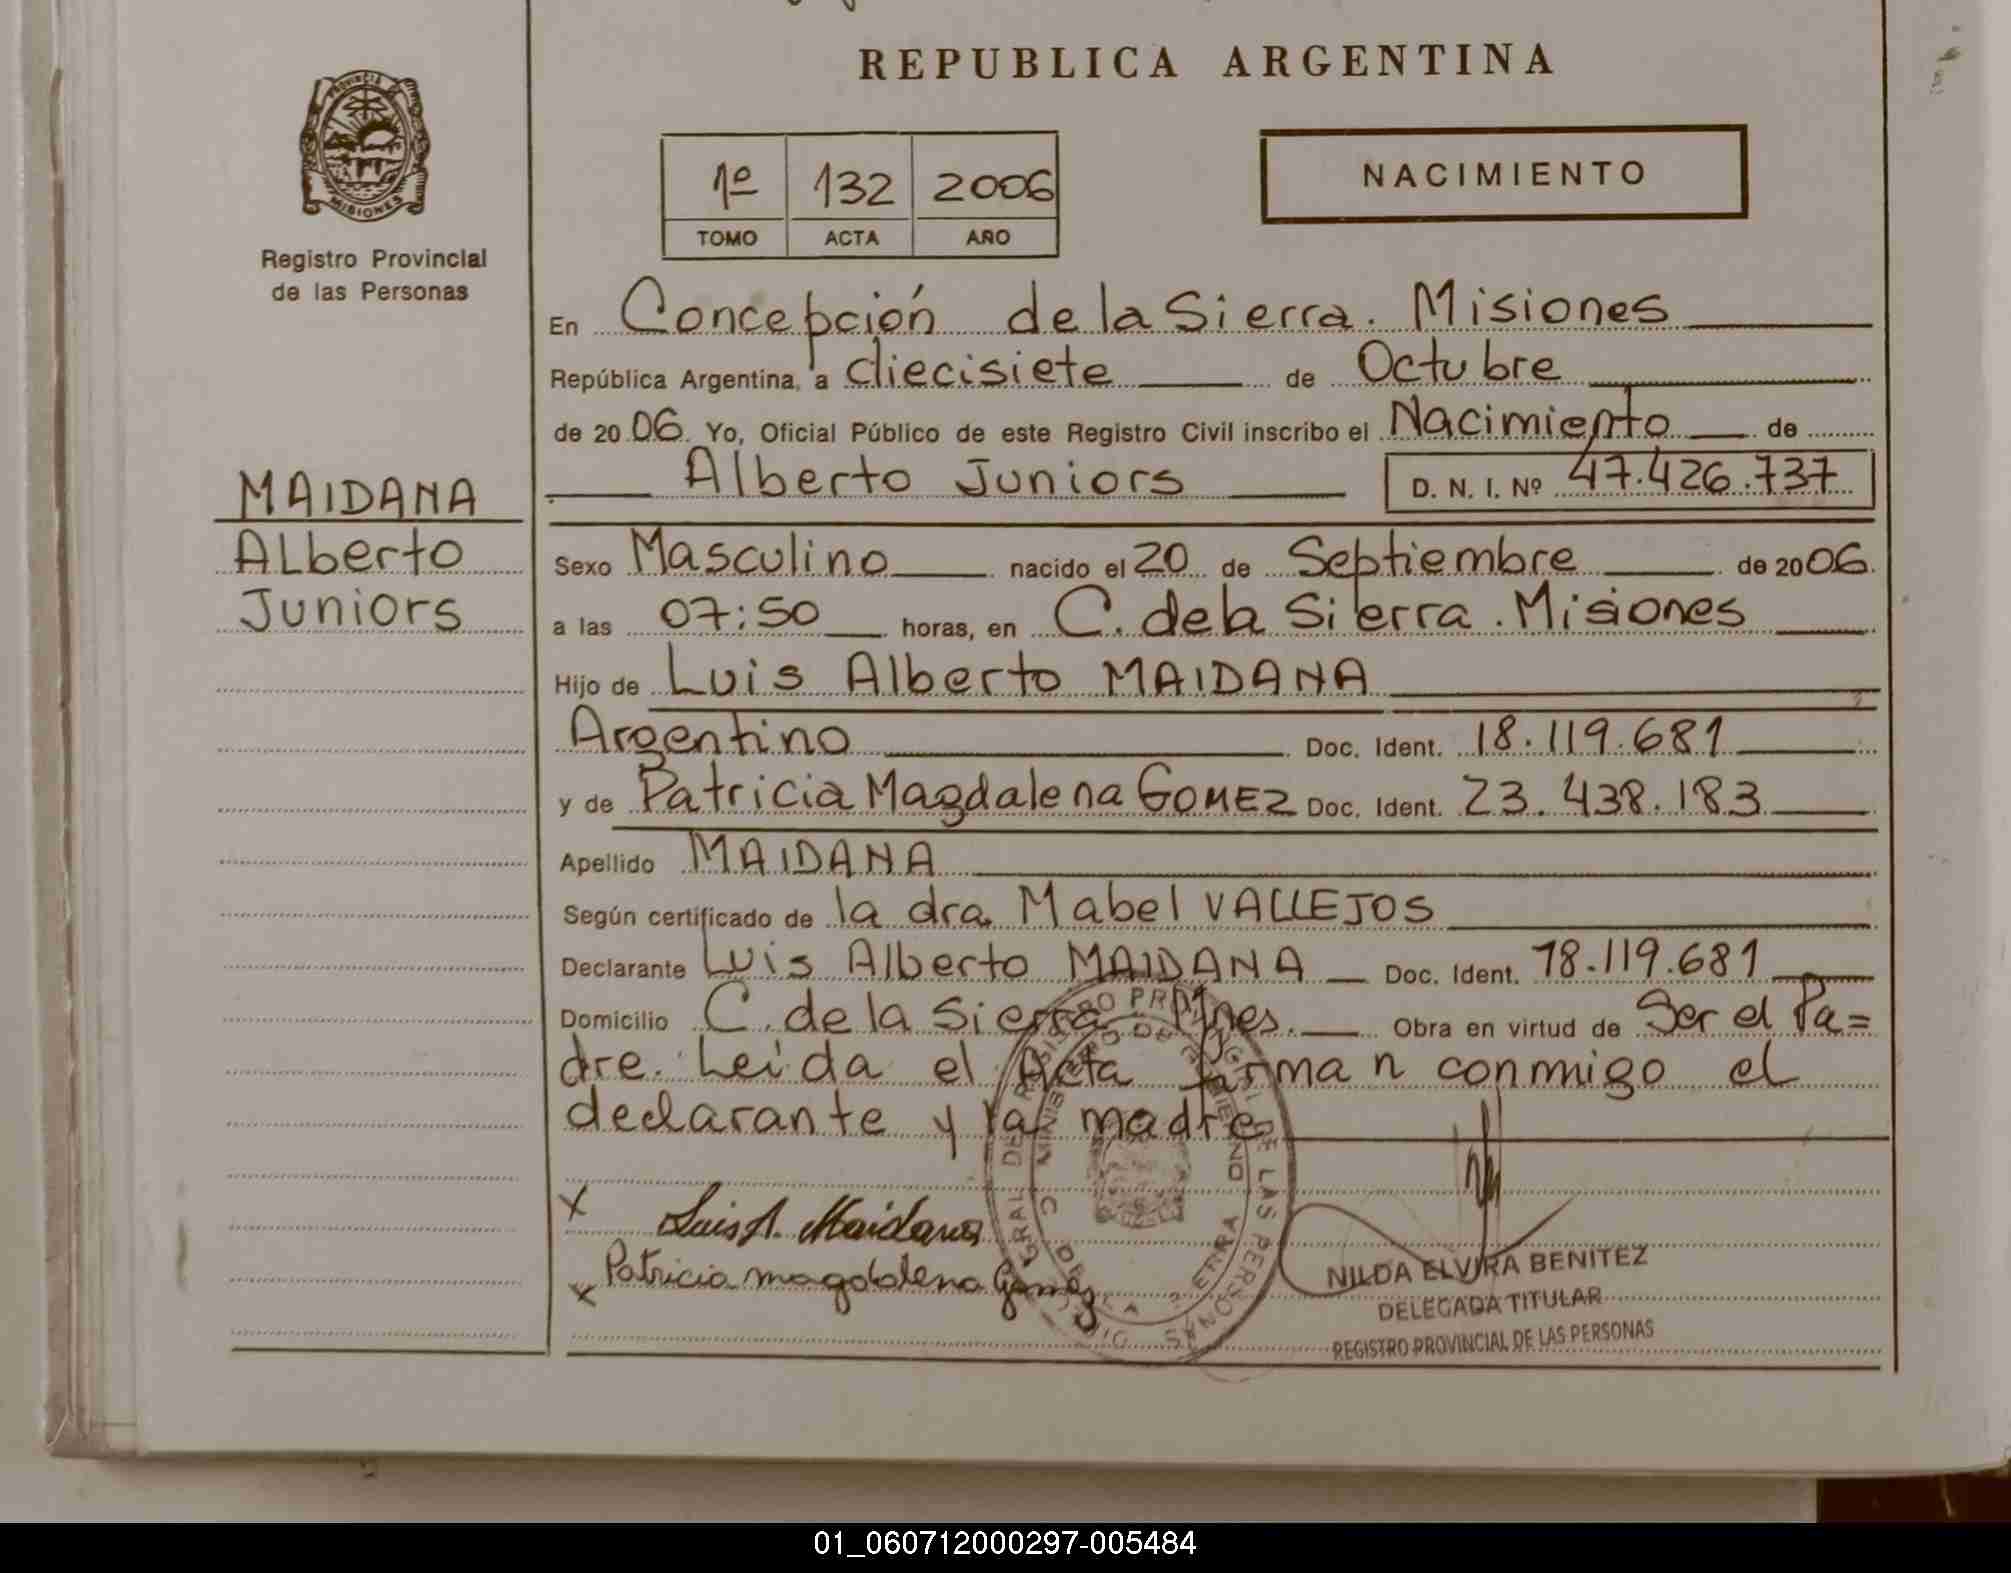 REPUBLICA ARGENTINA
PROVINCIA DE
MISIONES
Registro Provincial
de las Personas
1º 132 2006
TOMO ACTA AÑO
NACIMIENTO
En Concepción de la Sierra. Misiones
República Argentina, a diecisiete de Octubre
de 2006. Yo, Oficial Público de este Registro Civil inscribo el Nacimiento de
Alberto Juniors D. N. I. Nº 47.426.737
MAIDANA
Alberto
Juniors
Sexo Masculino nacido el 20 de Septiembre de 2006.
a las 07:50 horas, en C. de la Sierra. Misiones
Hijo de Luis Alberto MAIDANA
Argentino Doc. Ident. 18.119.681
y de Patricia Magdalena GOMEZ Doc. Ident. 23.438.183
Apellido MAIDANA
Según certificado de la dra. Mabel VALLEJOS
Declarante Luis Alberto MAIDANA Doc. Ident. 18.119.681
Domicilio C. de la Sierra Mnes. Obra en virtud de Ser el Pa=
dre. Leída el Acta firman conmigo el
declarante y la madre
X Luis A. Maidana
X Patricia magdalena Gomez
NILDA ELVIRA BENITEZ
DELEGADA TITULAR
REGISTRO PROVINCIAL DE LAS PERSONAS
01_060712000297-005484